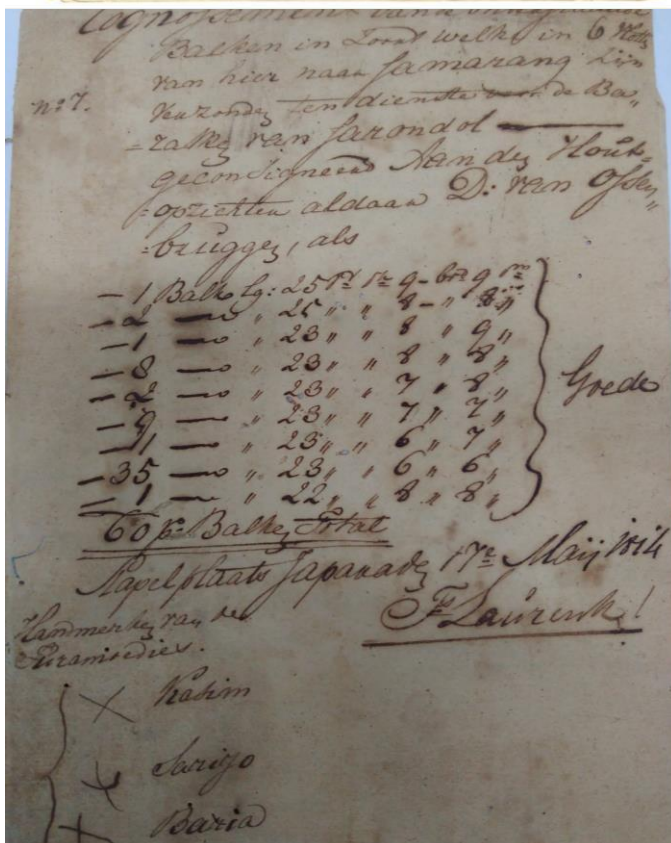 Cognossement van de
Balken in Zoort welke in 6
van hier naar Samarang zijn
No 7.
verzonden ten dienste voor de Ba-
=zakken van Sarondol
geconsigneerd Aan den Hout=
=opzichter aldaar D: van Ossen„
=bruggen, als
— 1 Balk lg: 25 Vt Vr 9 - bt 9 dm
— 2 — „ 25 „ „ 8 - „ 8 „
— 1 — „ 23 „ „ 8 „ 9 „
— 8 — „ 23 „ „ 8 „ 8 „
— 2 — „ 23 „ „ 7 „ 8 „
— 9 — „ 23 „ „ 7 „ 7 „
— 1 — „ 23 „ „ 6 „ 7 „
— 35 — „ 23 „ „ 6 „ 6 „
— 1 — „ 22 „ „ 8 „ 8 „
Goede
60 ps Balken Total
Stapelplaats Japara den 17e Maij 1814
Handmerken van de
Juramoedies.
Kasim
Sariyo
Baria